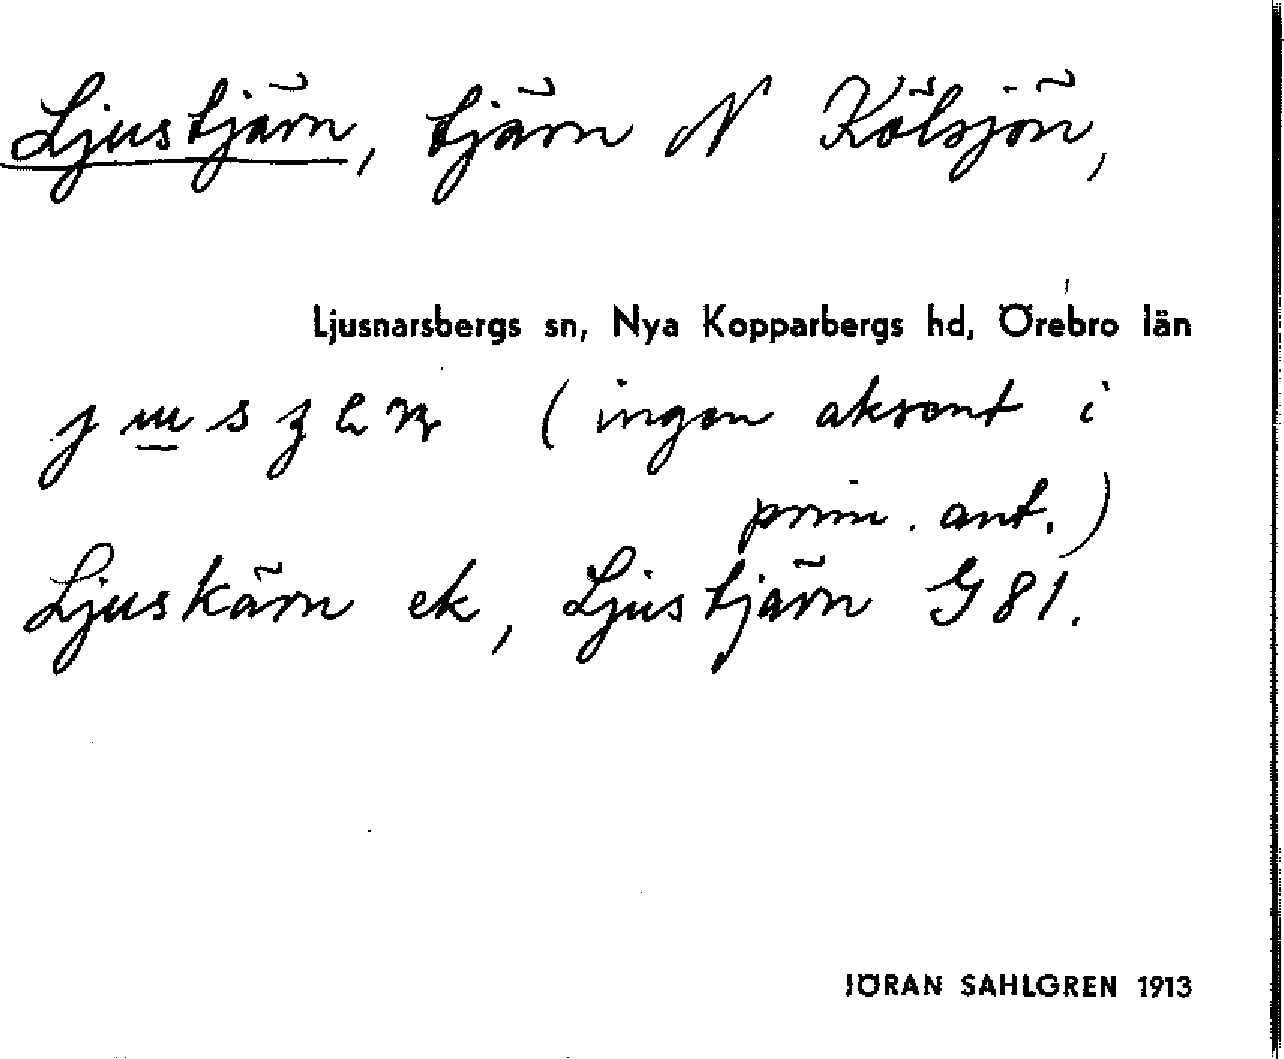 Ljustjärn, tjärn N Kölsjön,
Ljusnarsbergs sn, Nya Kopparbergs hd, Örebro län
(ingen aksent i
prim. ant.)
Ljuskärn ek, Ljustjärn G81.
JÖRAN SAHLGREN 1913